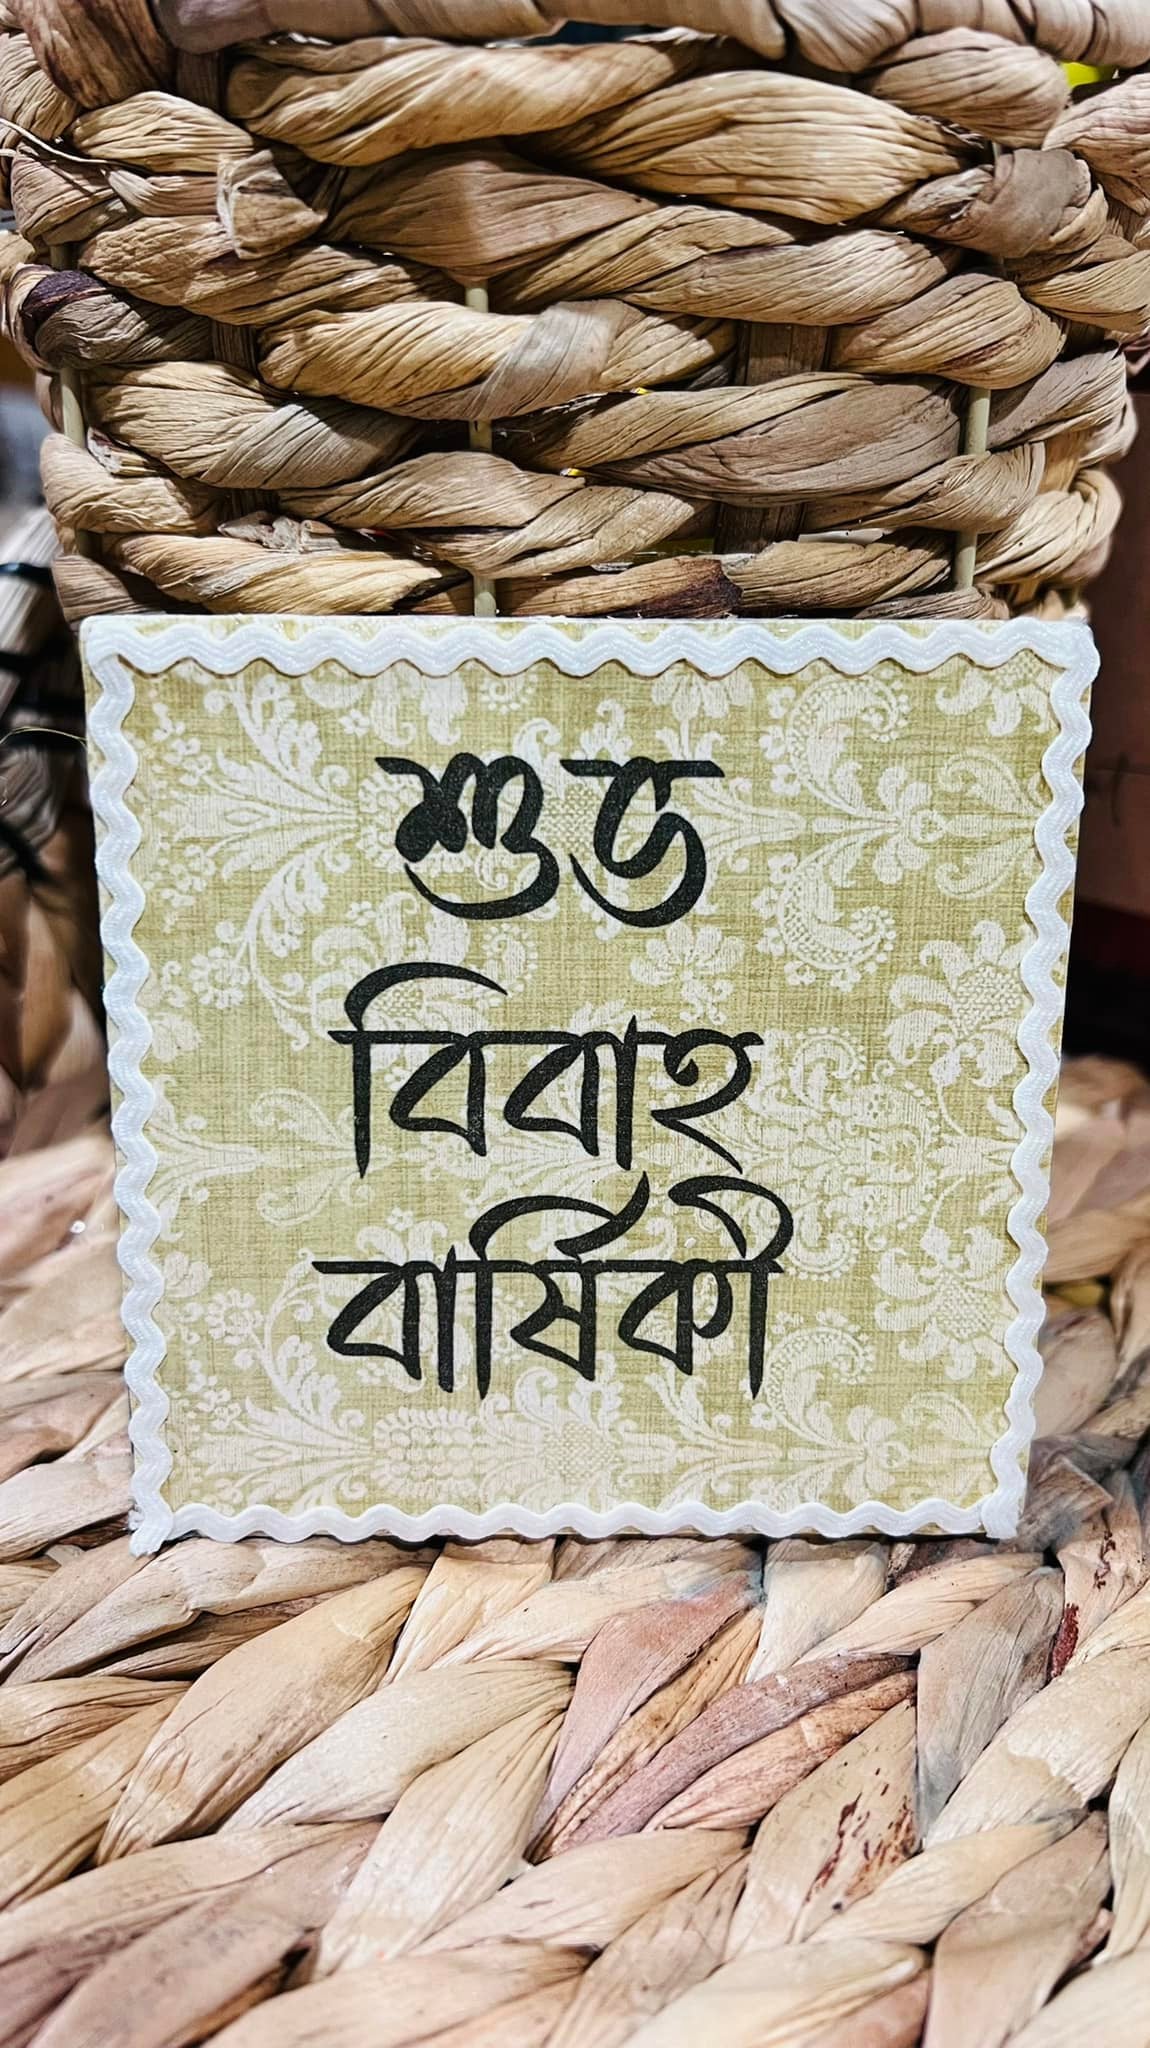 শুভ
বিবাহ
বার্ষিকী